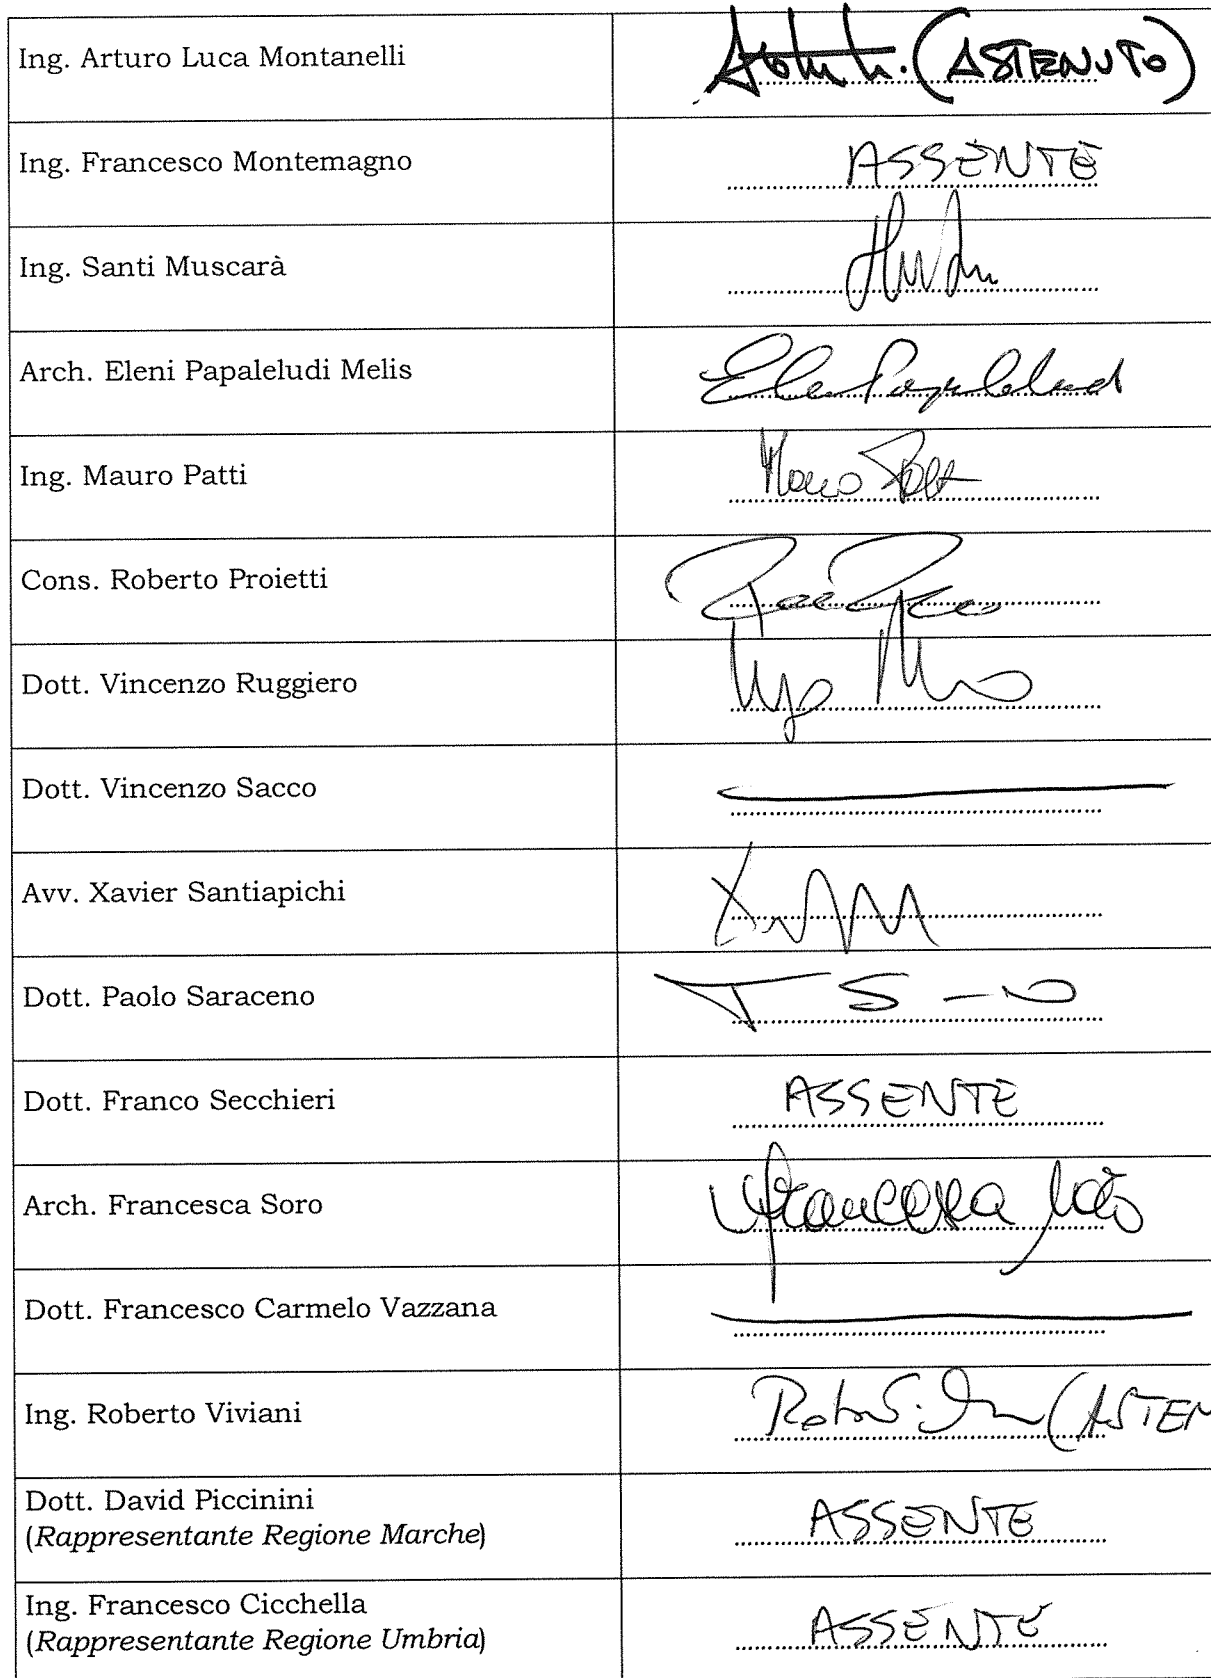 Ing. Arturo Luca Montanelli (ASTENUTO)
Ing. Francesco Montemagno ASSENTE
Ing. Santi Muscarà
Arch. Eleni Papaleludi Melis
Ing. Mauro Patti
Cons. Roberto Proietti
Dott. Vincenzo Ruggiero
Dott. Vincenzo Sacco
Avv. Xavier Santiapichi
Dott. Paolo Saraceno
Dott. Franco Secchieri ASSENTE
Arch. Francesca Soro Francesca
Dott. Francesco Carmelo Vazzana
Ing. Roberto Viviani (ASTEN
Dott. David Piccinini
(Rappresentante Regione Marche) ASSENTE
Ing. Francesco Cicchella
(Rappresentante Regione Umbria) ASSENTE